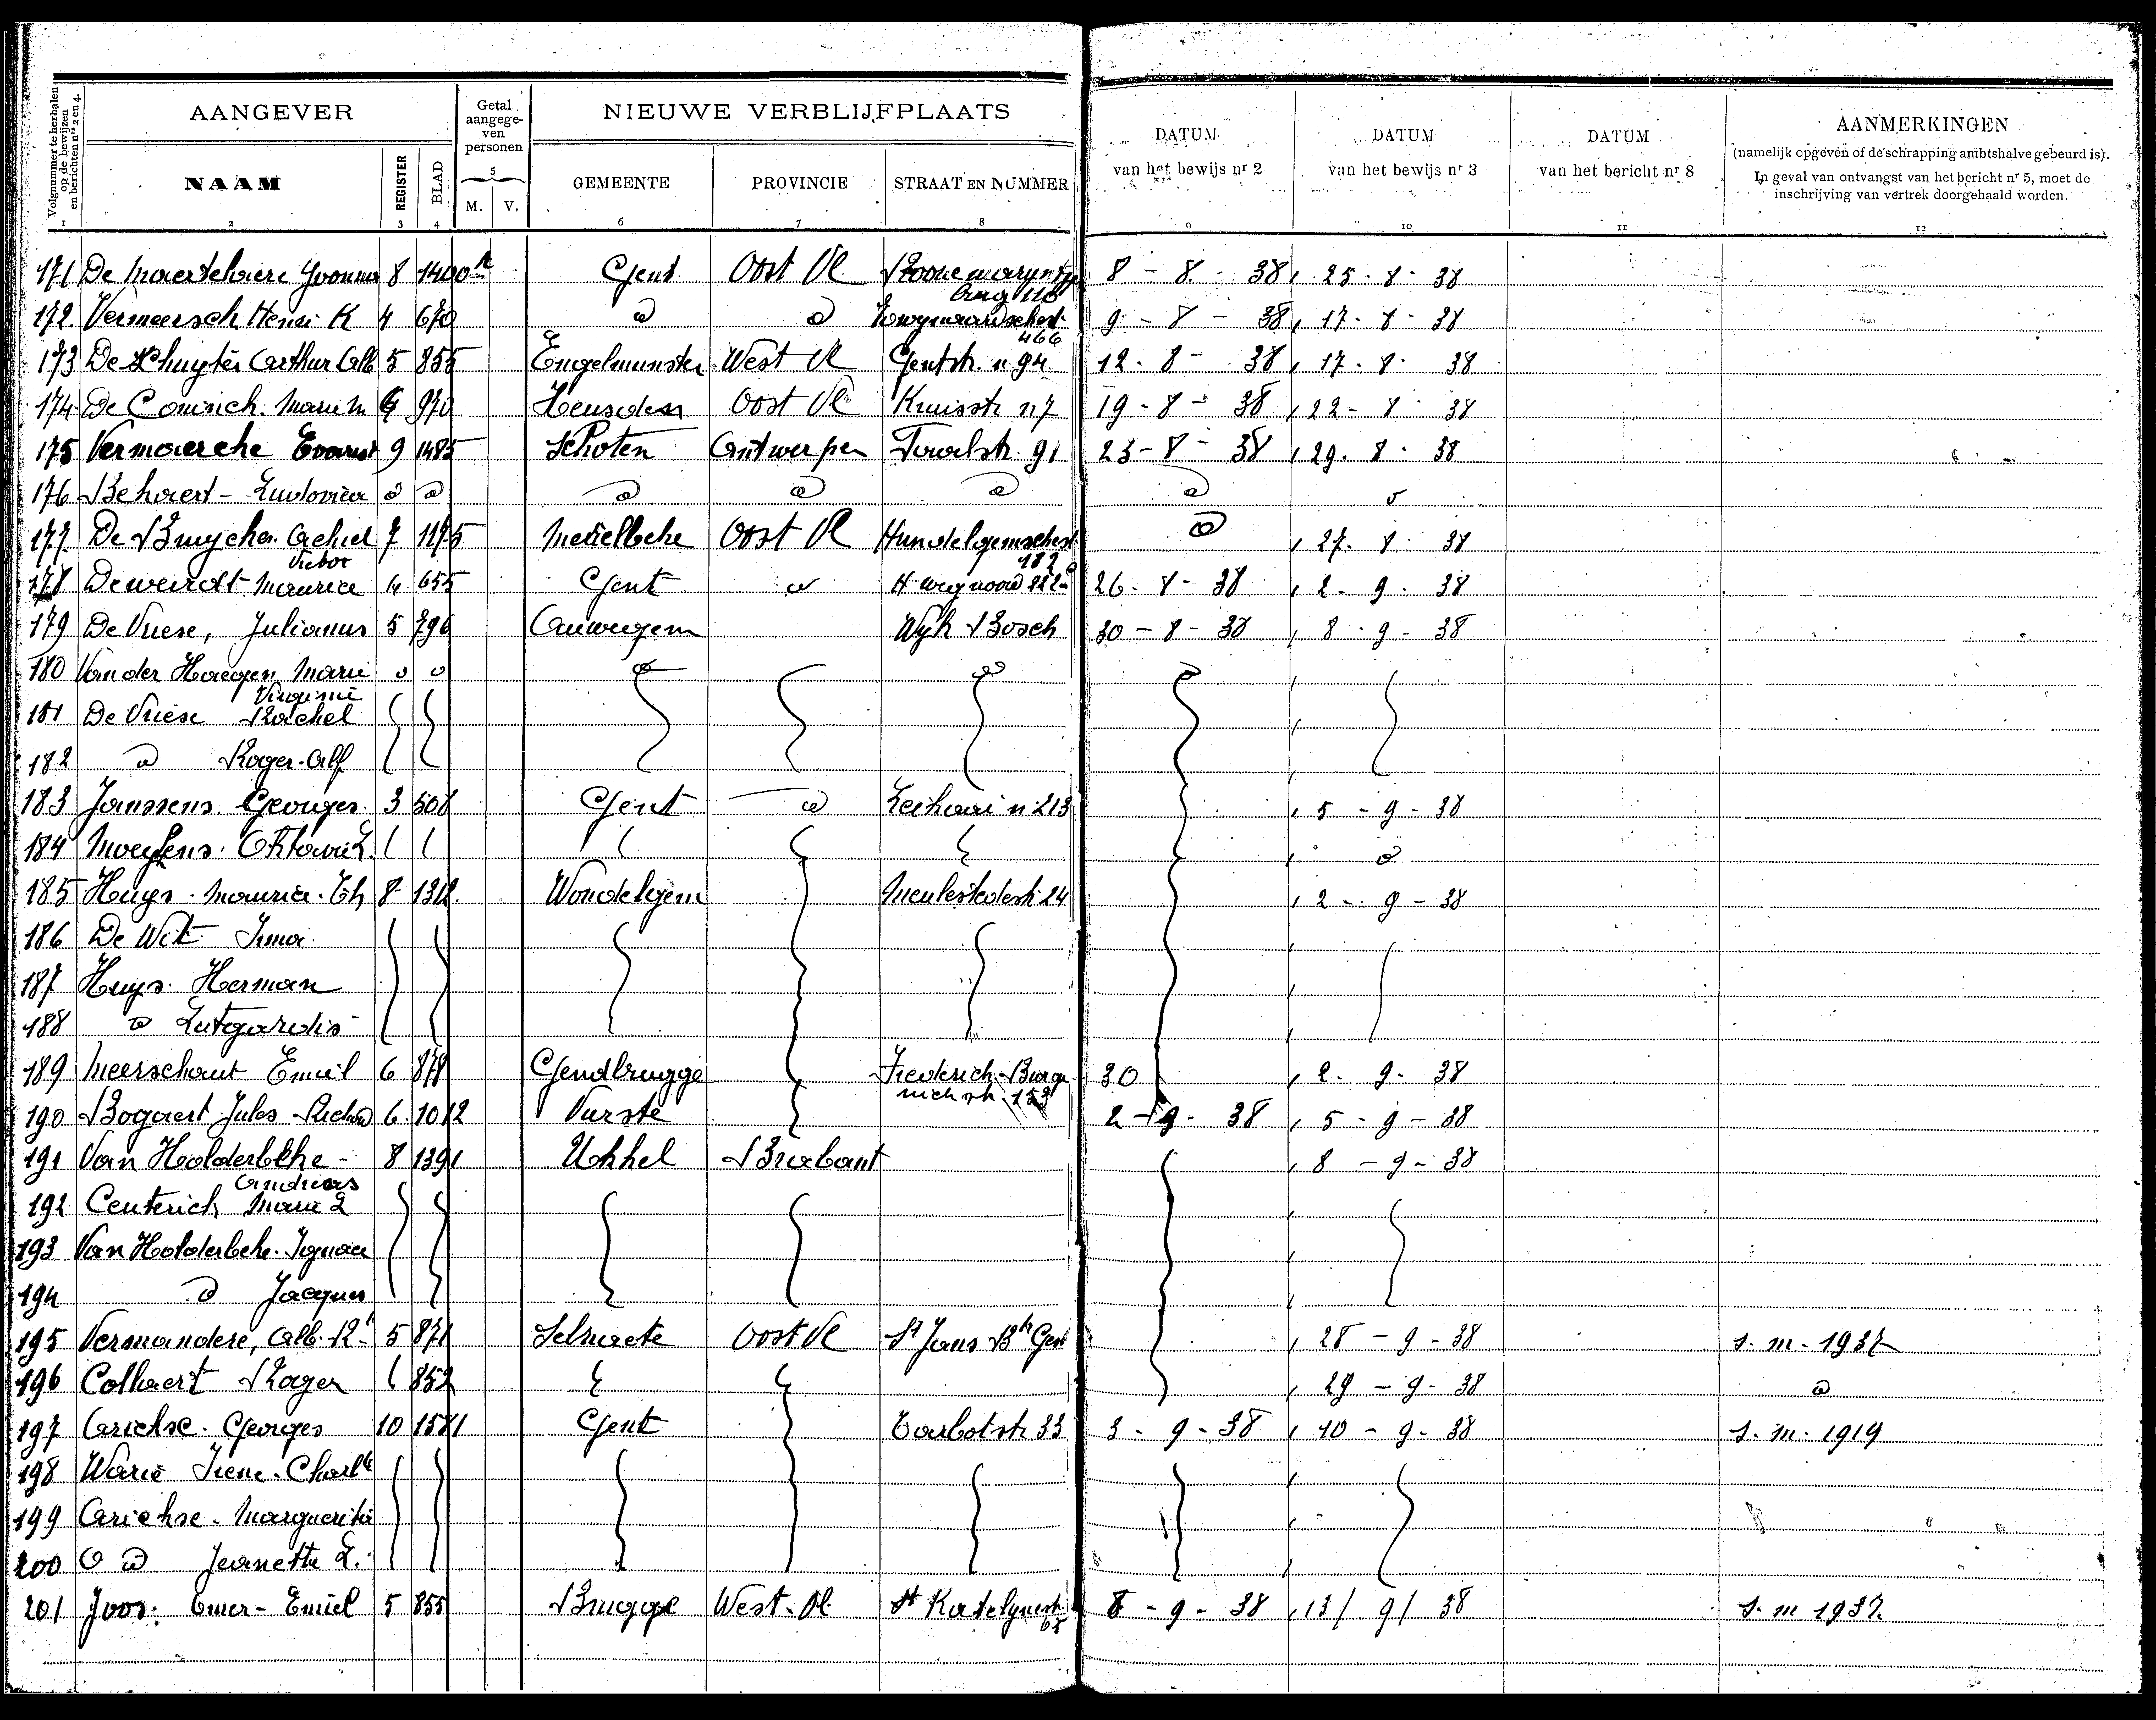 Volgnummer te herhalen op de bewijzen en berichten nrs 2 en 4.
AANGEVER
Getal aangegeven personen
NIEUWE VERBLIJFPLAATS
DATUM van het bewijs nr 2
DATUM van het bewijs nr 3
DATUM van het bericht nr 8
AANMERKINGEN
(namelijk opgeven of de schrapping ambtshalve gebeurd is).
In geval van ontvangst van het bericht nr 5, moet de
inschrijving van vertrek doorgehaald worden.
NAAM REGISTER BLAD M. V. GEMEENTE PROVINCIE STRAAT EN NUMMER
1 2 3 4 5 6 7 8 9 10 11 12
171 De Maertelaere Yvonna 8 1400 Gent Oost Vl 8 - 8 - 38 25 - 8 - 38
172 Vermeersch Henri K 4 670 d d 466 9 - 8 - 38 17 - 8 - 38
173 De Schuyter Arthur Alb 5 855 Engelmunster West Vl Gentstr. n 94 12 - 8 - 38 17 - 8 - 38
174 De Coninck Marie M 970 Heusden Oost Vl Kruisstr n 7 19 - 8 - 38 22 - 8 - 38
175 Vermaercke Evarist 9 1485 Schoten Antwerpen 91 23 - 8 - 38 29 - 8 - 38
176 Behaert - Ludovica d d d d d d d
177 De Bruycker Achiel Victor 7 1175 Merelbeke Oost Vl Hundelgemschest 182 d 27 - 8 - 38
178 Deweirdt Maurice 4 655 Gent d 26 - 8 - 38 2 - 9 - 38
179 De Vriese, Julianus 5 796 Auwegem Wijk Bosch 30 - 8 - 38 8 - 9 - 38
180 Van der Haegen Marie Virginie d d d d d
181 De Vriese Rachel
182 d Roger - Alf
183 Janssens Georges 3 508 Gent d Leikaai n 213 5 - 9 - 38
184 d
185 Huys - Maurice - Th 8 1312 Wondelgem Meulestedestr 24 2 - 9 - 38
186 De Wit Irma
187 Huys Herman
188 d Lutgardis
189 Meerschaut Emiel 6 878 Gendbrugge 153 30 2 - 9 - 38
190 Bogaert Jules Richard 6 1012 Vurste 2 - 9 - 38 5 - 9 - 38
191 Van Holderbeke - Andreas 8 1391 Ukkel Brabant 8 - 9 - 38
192 Centerick Marie L
193 Van Holderbeke Ignace
194 d Jacques
195 Vermandere, Alb. R. 5 871 Selzaete Oost Vl St Jans 28 - 9 - 38 s. m. 1937
196 Collaert Roger 852 29 - 9 - 38 d
197 Arickse Georges 10 1581 Gent Tarbotstr 33 3 - 9 - 38 10 - 9 - 38 s. m. 1919
198 Irene - Charlte
199 Arickse - Marguerite
200 d Jeanette L.
201 Joos Omer - Emiel 5 855 Brugge West - Vl St Katelynestr 65 8 - 9 - 38 13 / 9 / 38 s. m 1937